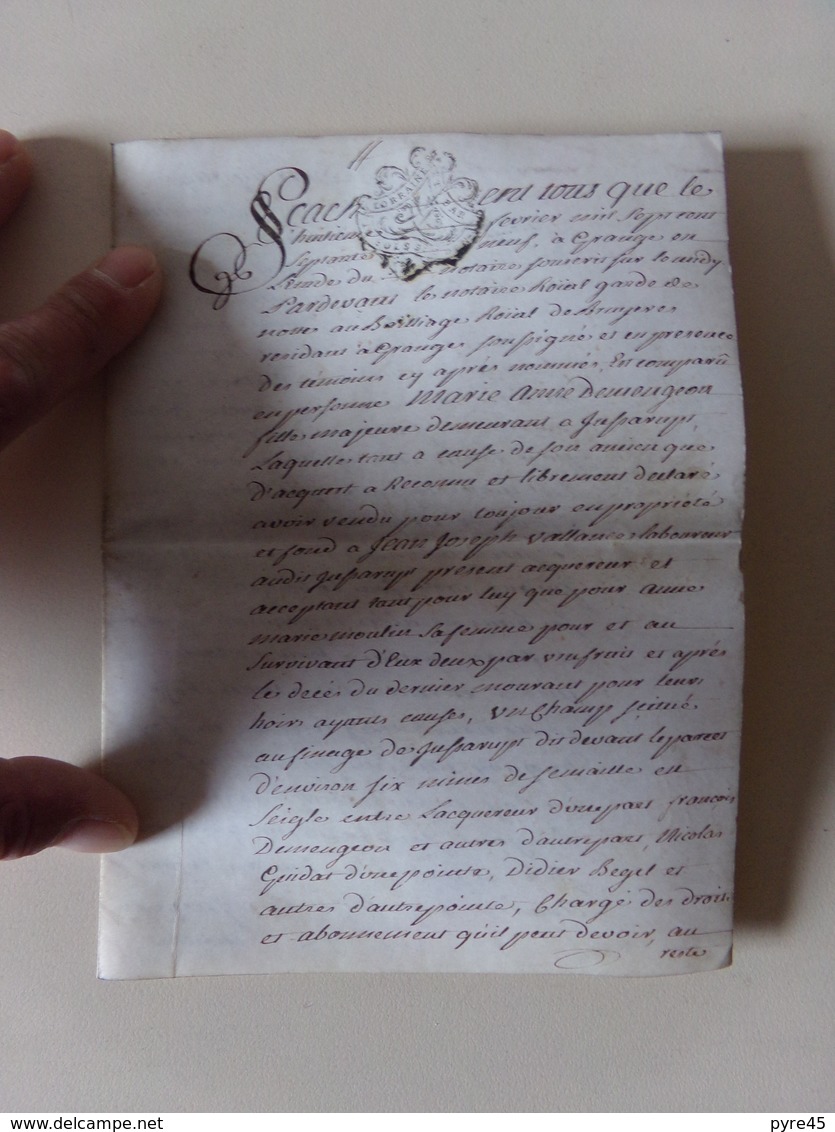 Scach ent tous que le
LORRAINE
BAR
huitieme fevrier mil sept cent
septante neuf, à Grange en
L'etude du notaire souscrit sur le midy
Pardevant le notaire Roial garde no
notte au Bailliage Roial de Bruyeres
residant à Granges soussigné et en presence
des témoins cy après nommés, Est comparüe
en personne Marie Anne Demengeon
fille majeure demeurant a Jussarupt,
Laquelle tant a cause de son ancien que
d'acquort a Reconnu et librement declaré
avoir vendu pour toujour en propriété
et fond a Jean Joseph Vallance laboureur
audit Jussarupt present acquereur et
acceptant tant pour luy que pour Anne
Marie Moulin sa femme pour et au
survivant d'Eux deux par usufruit et après
le decés du dernier mourant pour leurs
hoirs ayttus cause, un champ scitué
au finage de Jussarupt dit devant le parcet
d'environ six mines de semaille en
seigle entre Lacquereur d'une part françois
Demengeon et autres d'autre part, Nicolas
Guidat d'une pointe, Didier Begel et
autres d'autre pointe, Chargé des droits
et abonnement qu'il peut devoir, au
reste
www.delcampe.net
pyre45